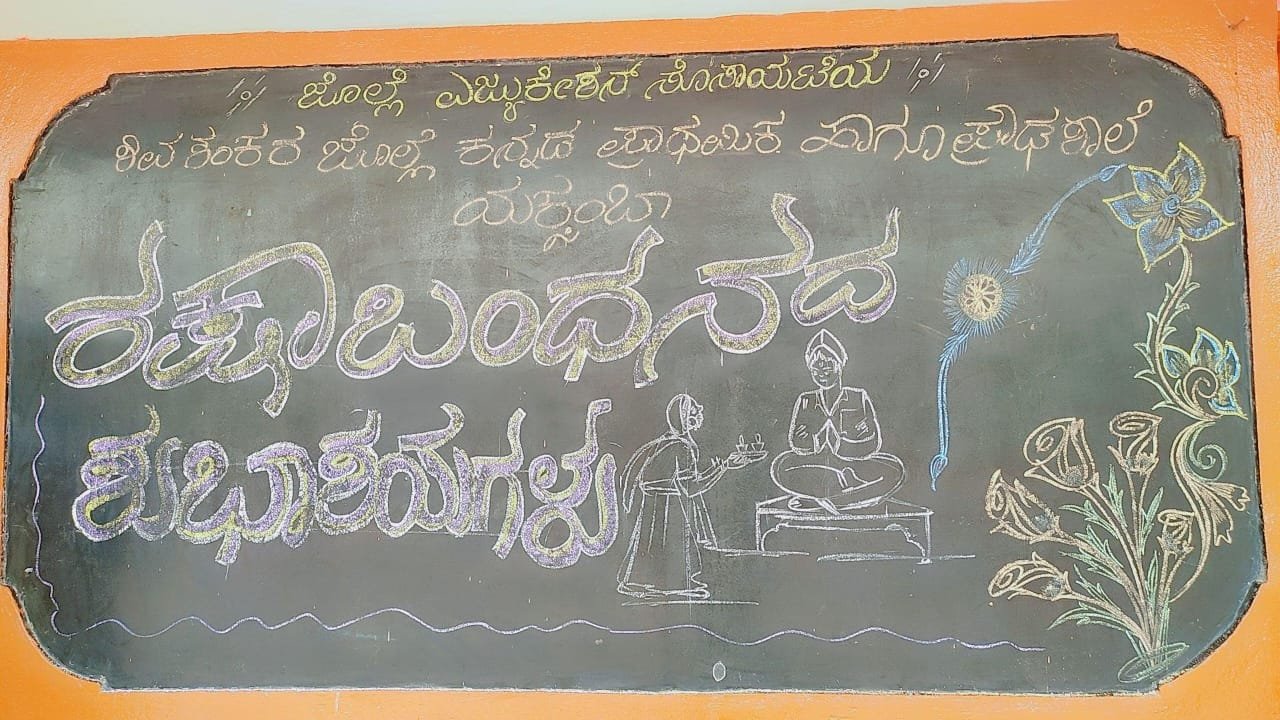 ಜೊಲ್ಲೆ ಎಜ್ಯುಕೇಶನ್ ಸೊಸಾಯಟಿಯ
ಶಿವಶಂಕರ ಜೊಲ್ಲೆ ಕನ್ನಡ ಪ್ರಾಥಮಿಕ ಹಾಗೂ ಪ್ರೌಢ ಶಾಲೆ
ಯಕ್ಸಂಬಾ
ರಕ್ಷಾಬಂಧನದ
ಶುಭಾಶಯಗಳು